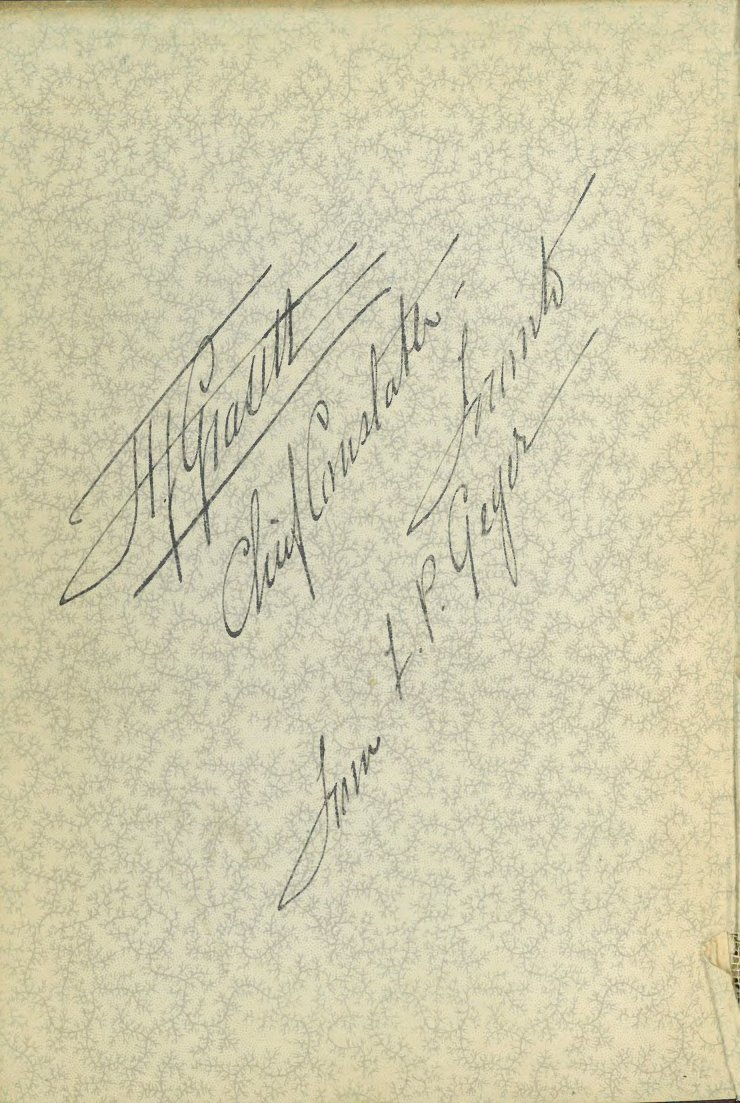 H. J. Grasett
Chief Constable -
Toronto
From F. P. Geyer